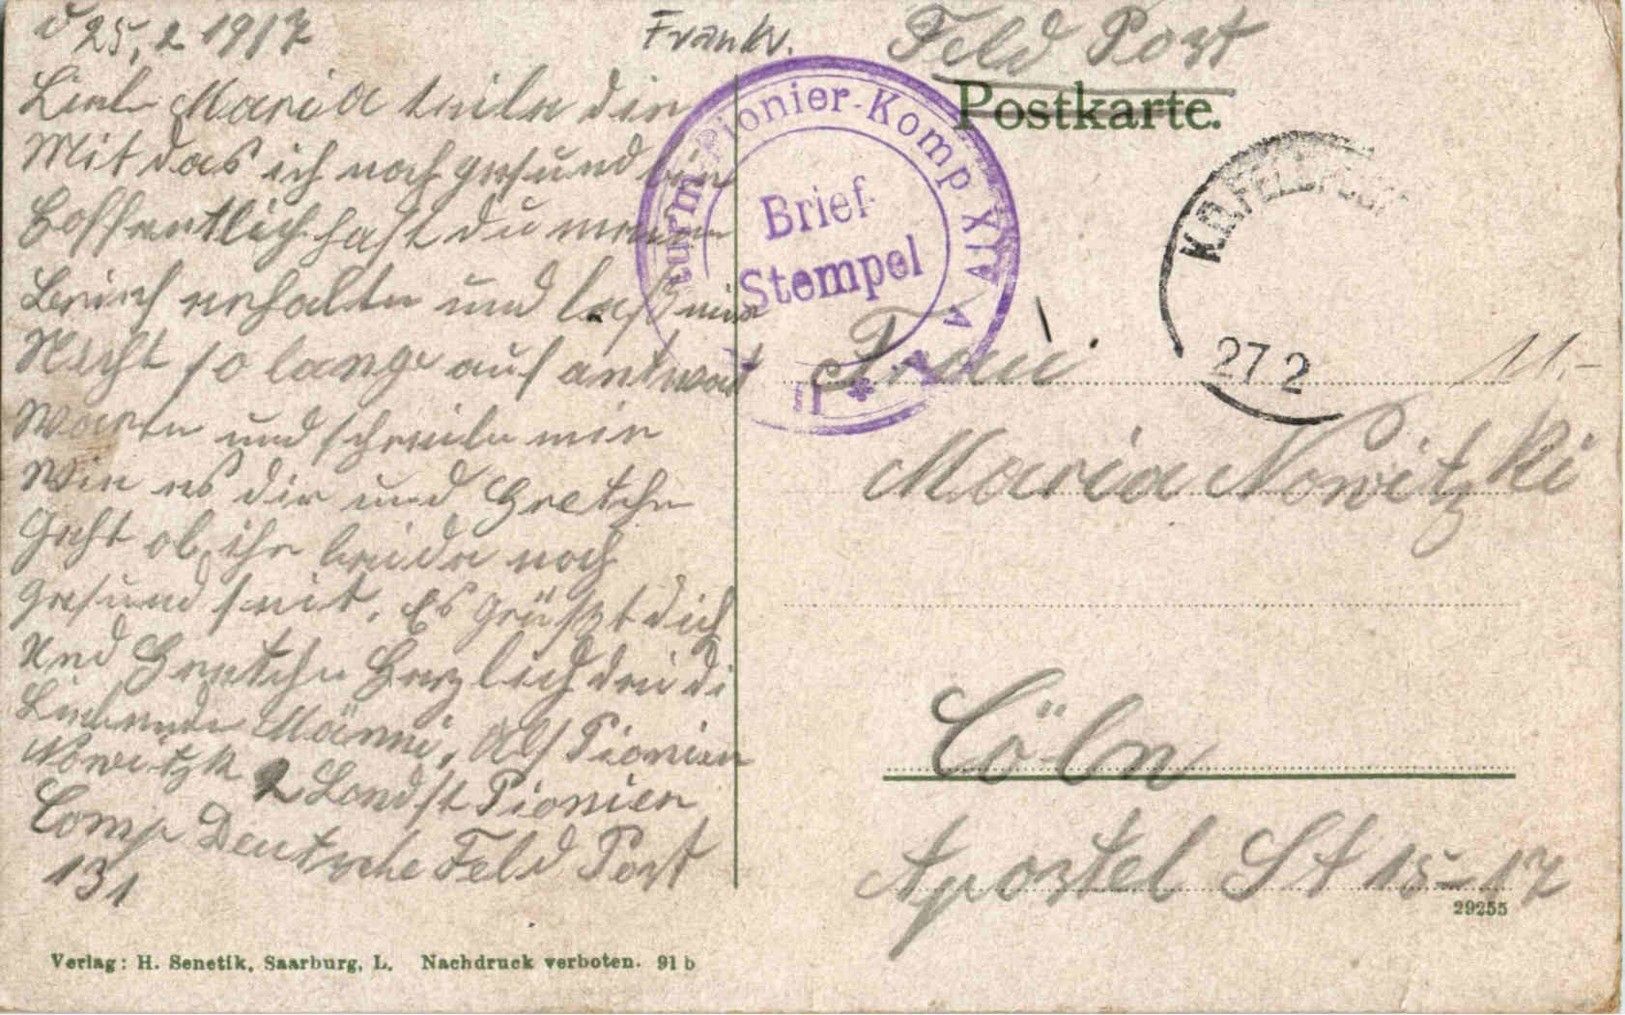 d 25.2 1917
Liebe Maria teile dir
Mit das ich noch gesund bin
Hoffentlich hast du meinen
Brief erhalten und laß mir
Nicht so lange auf antwort
Warten und schreibe mir
Wie es dir und Gretchen
Geht ob ihr beide noch
Gesund seit. Es Grüßt dich
Und Gretchen Herzlich dein di
Liebender Männi, Abs Pionier
Nowitzki 2 Landst Pionier
Comp Deutsche Feld Post
131
Verlag: H. Senetik, Saarburg, L. Nachdruck verboten. 91 b
Frankr.
Feld Post
Postkarte.
turm-Pionier-Komp XIV A K
Brief-
Stempel
K.D. FELDPOST
27 2
11,-
Frau
Maria Nowitzki
Cöln
Apostel St 15-17
29255